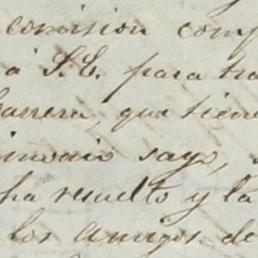 comision comp
á S.E. para tra
Barrera, que tiene
sayo,
ha resuelto y la
los amigos de